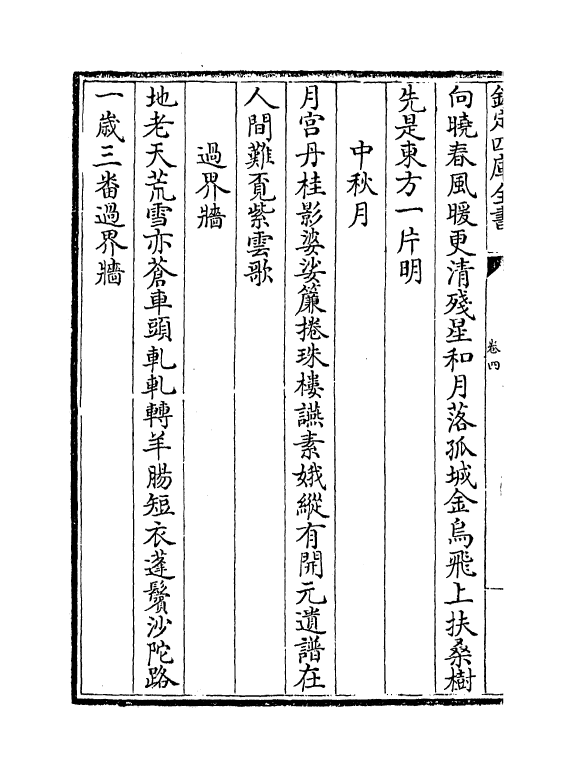 欽定四庫全書
卷四
向曉春風暖更清殘星和月落孤城金烏飛上扶桑樹
先是東方一片明
中秋月
月宮丹桂影婆娑簾捲珠樓讌素娥縱有開元遺譜在
人間難覓紫雲歌
過界牆
地老天荒雪亦蒼車頭軋軋轉羊腸短衣蓬鬢沙陀路
一歲三番過界牆